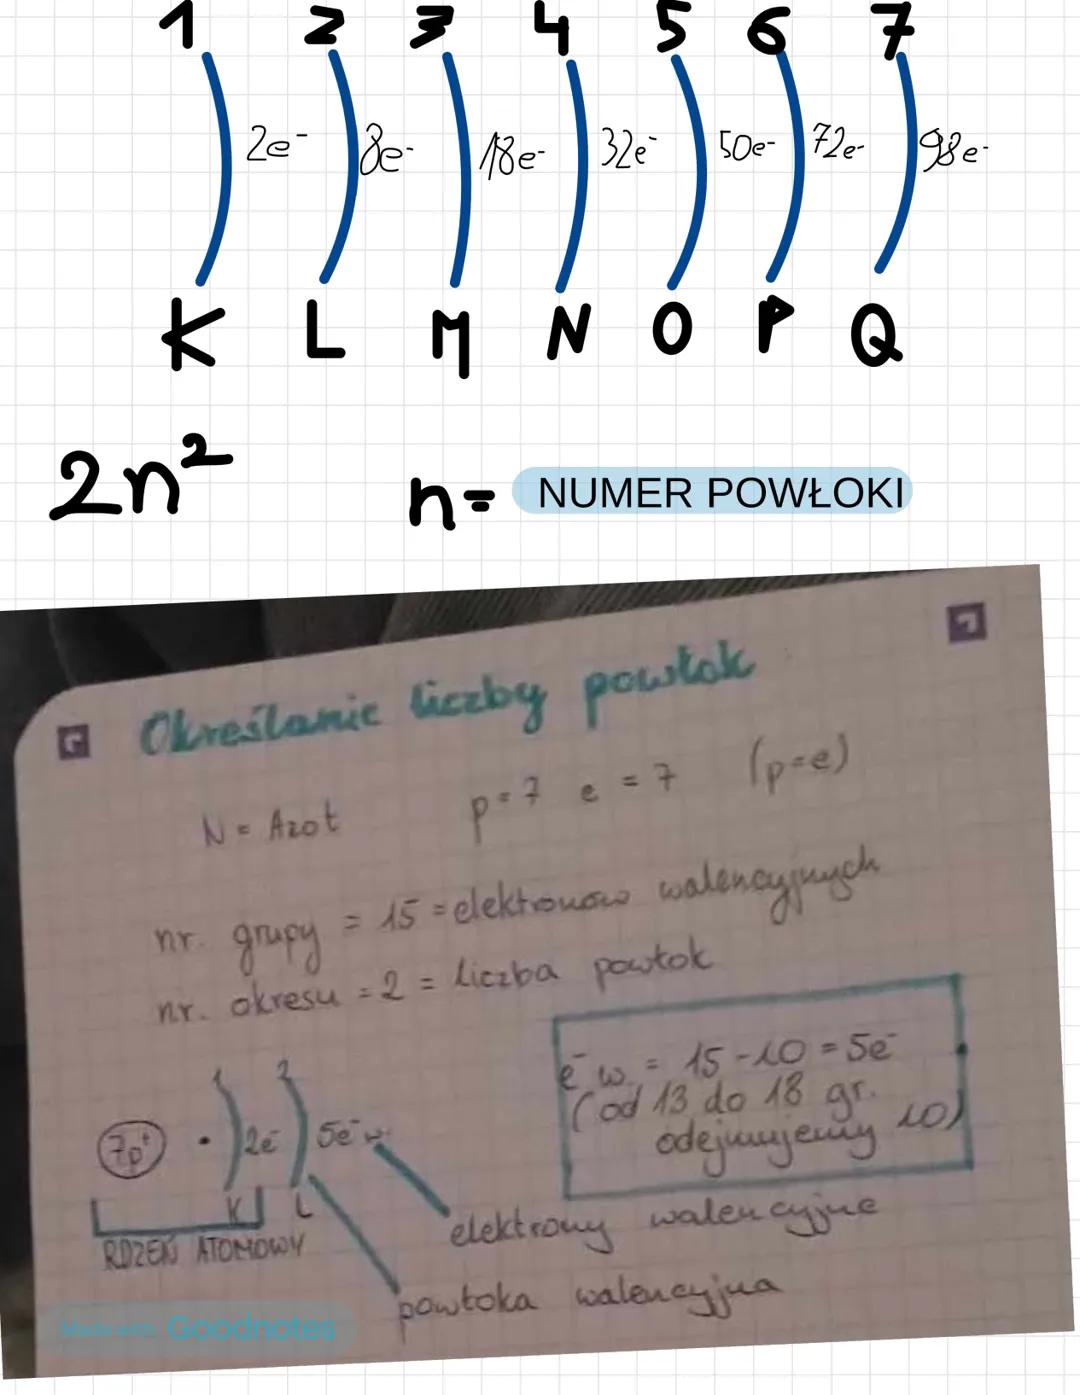 1 2 3 4 5 6 7
2e⁻ 8e⁻ 18e⁻ 32e⁻ 50e⁻ 72e⁻ 98e⁻
K L M N O P Q
2n² n= NUMER POWŁOKI
Określanie liczby powłok
N = Azot p=7 e = 7 (p=e)
nr. grupy = 15 = elektronów walencyjnych
nr. okresu = 2 = liczba powłok
e⁻ w. = 15 - 10 = 5e⁻
(od 13 do 18 gr.
odejmujemy 10)
1 2
7p⁺ 2e⁻ 5e⁻ w.
K L
RDZEŃ ATOMOWY
elektrony walencyjne
powłoka walencyjna
Made with Goodnotes